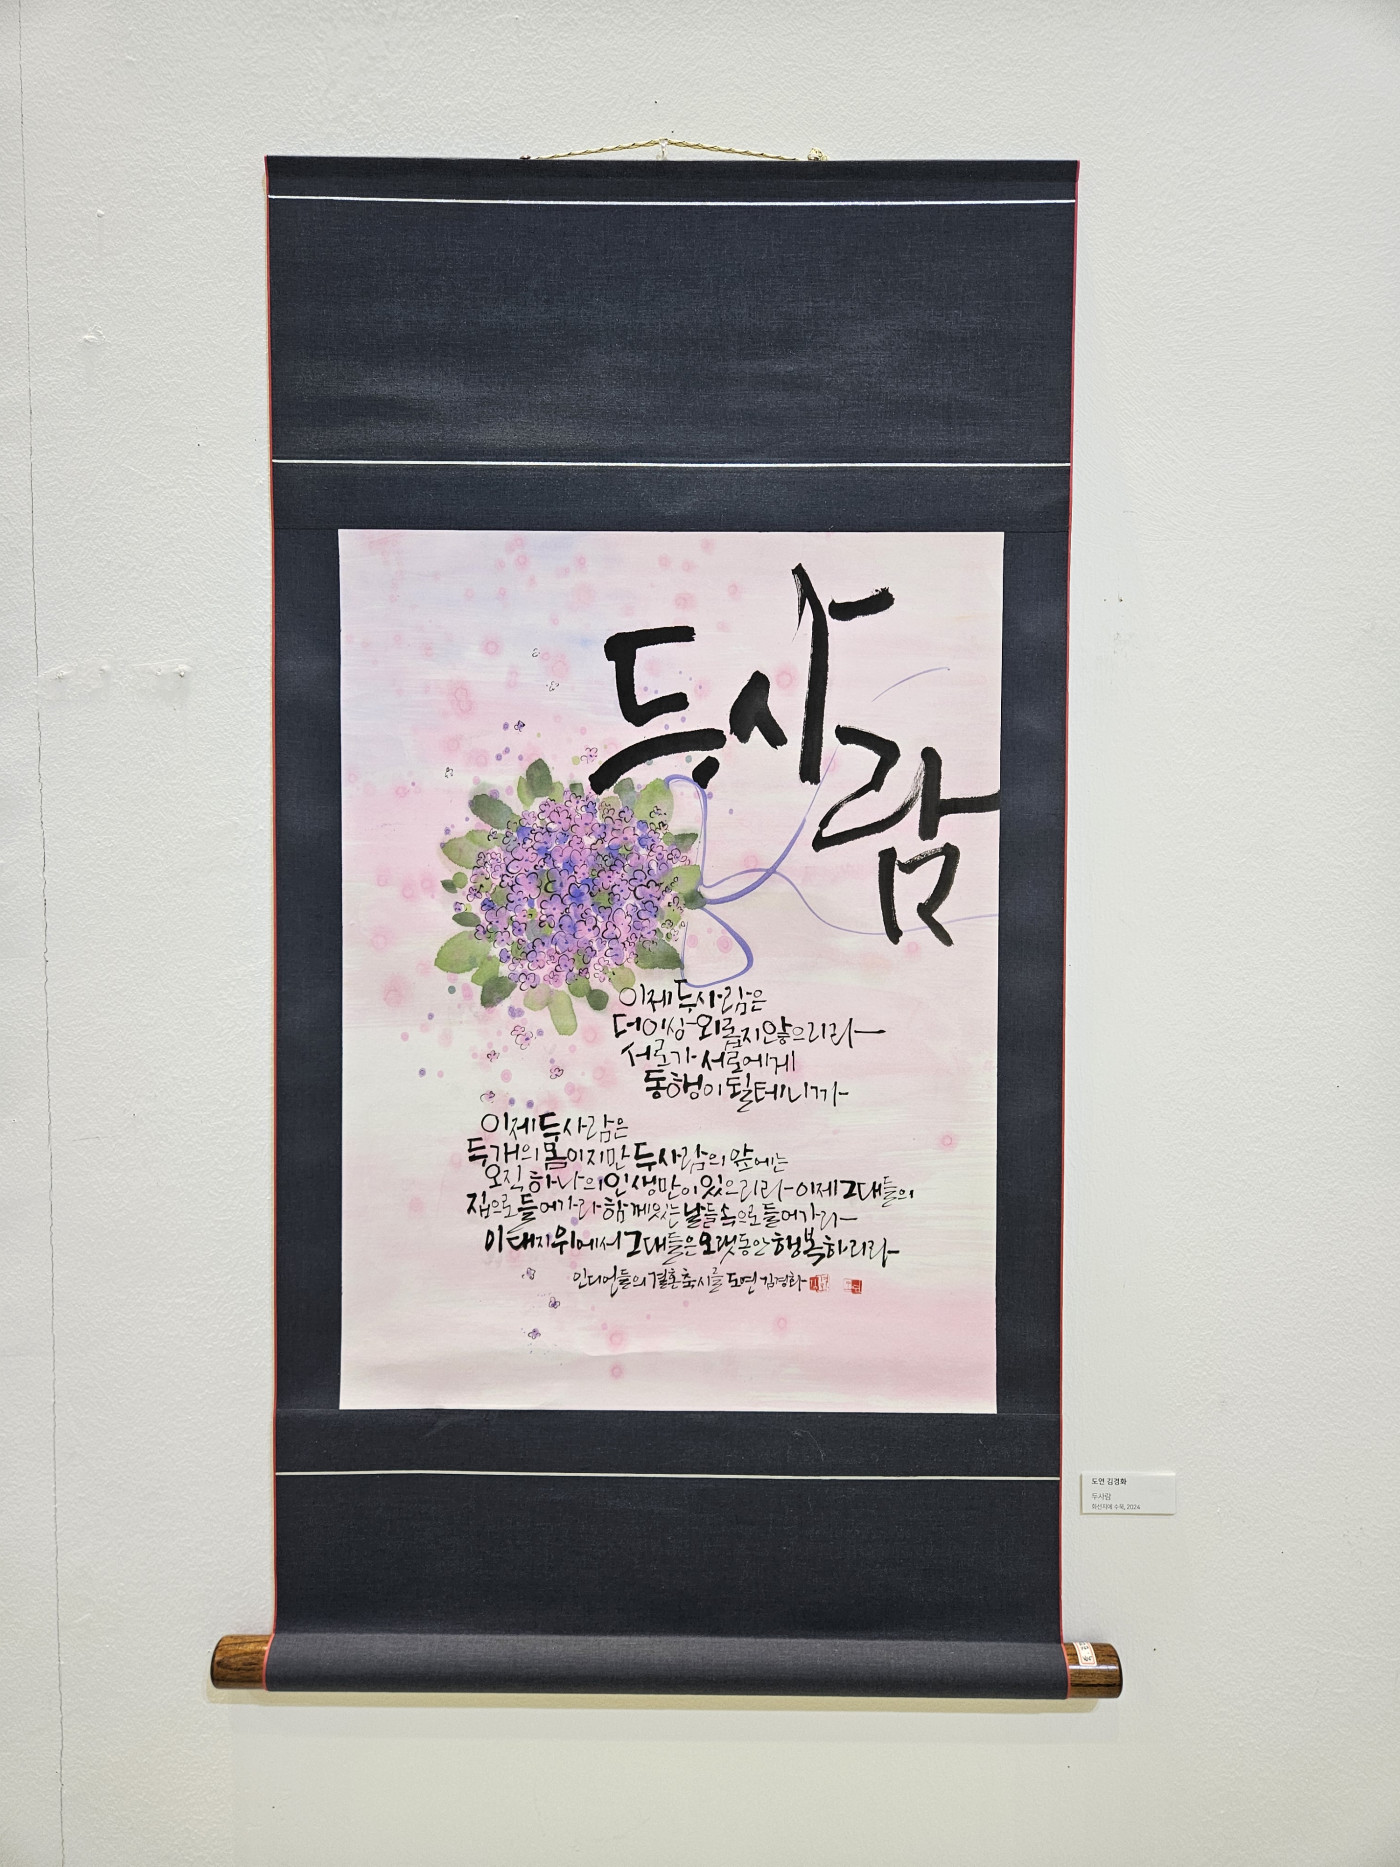 두 사람
이제 두 사람은
더 이상 외롭지 않으리라
서로가 서로에게
동행이 될 테니까
이제 두 사람은
두 개의 몸이지만 두 사람의 앞에는
오직 하나의 인생만이 있으리라 이제 그대들의
집으로 들어가라 함께 있는 날들 속으로 들어가라
이 대지 위에서 그대들은 오랫동안 행복하리라
인디언들의 결혼 축시를 도연 김경화
도연 김경화
두사람
화선지에 수묵, 2024